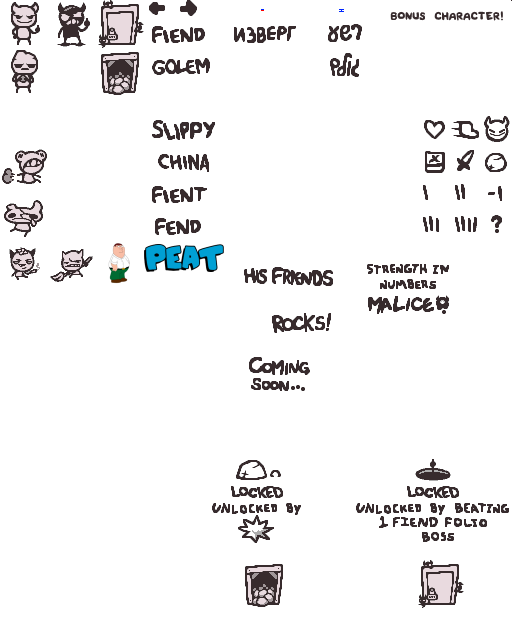 BONUS CHARACTER!
FIEND
ИЗВЕРГ
GOLEM
SLIPPY
CHINA
FIENT
FEND
PEAT
HIS FRIENDS
STRENGTH IN
NUMBERS
MALICE
ROCKS!
COMING
SOON...
-1
?
LOCKED
UNLOCKED BY
LOCKED
UNLOCKED BY BEATING
1 FIEND FOLIO
BOSS